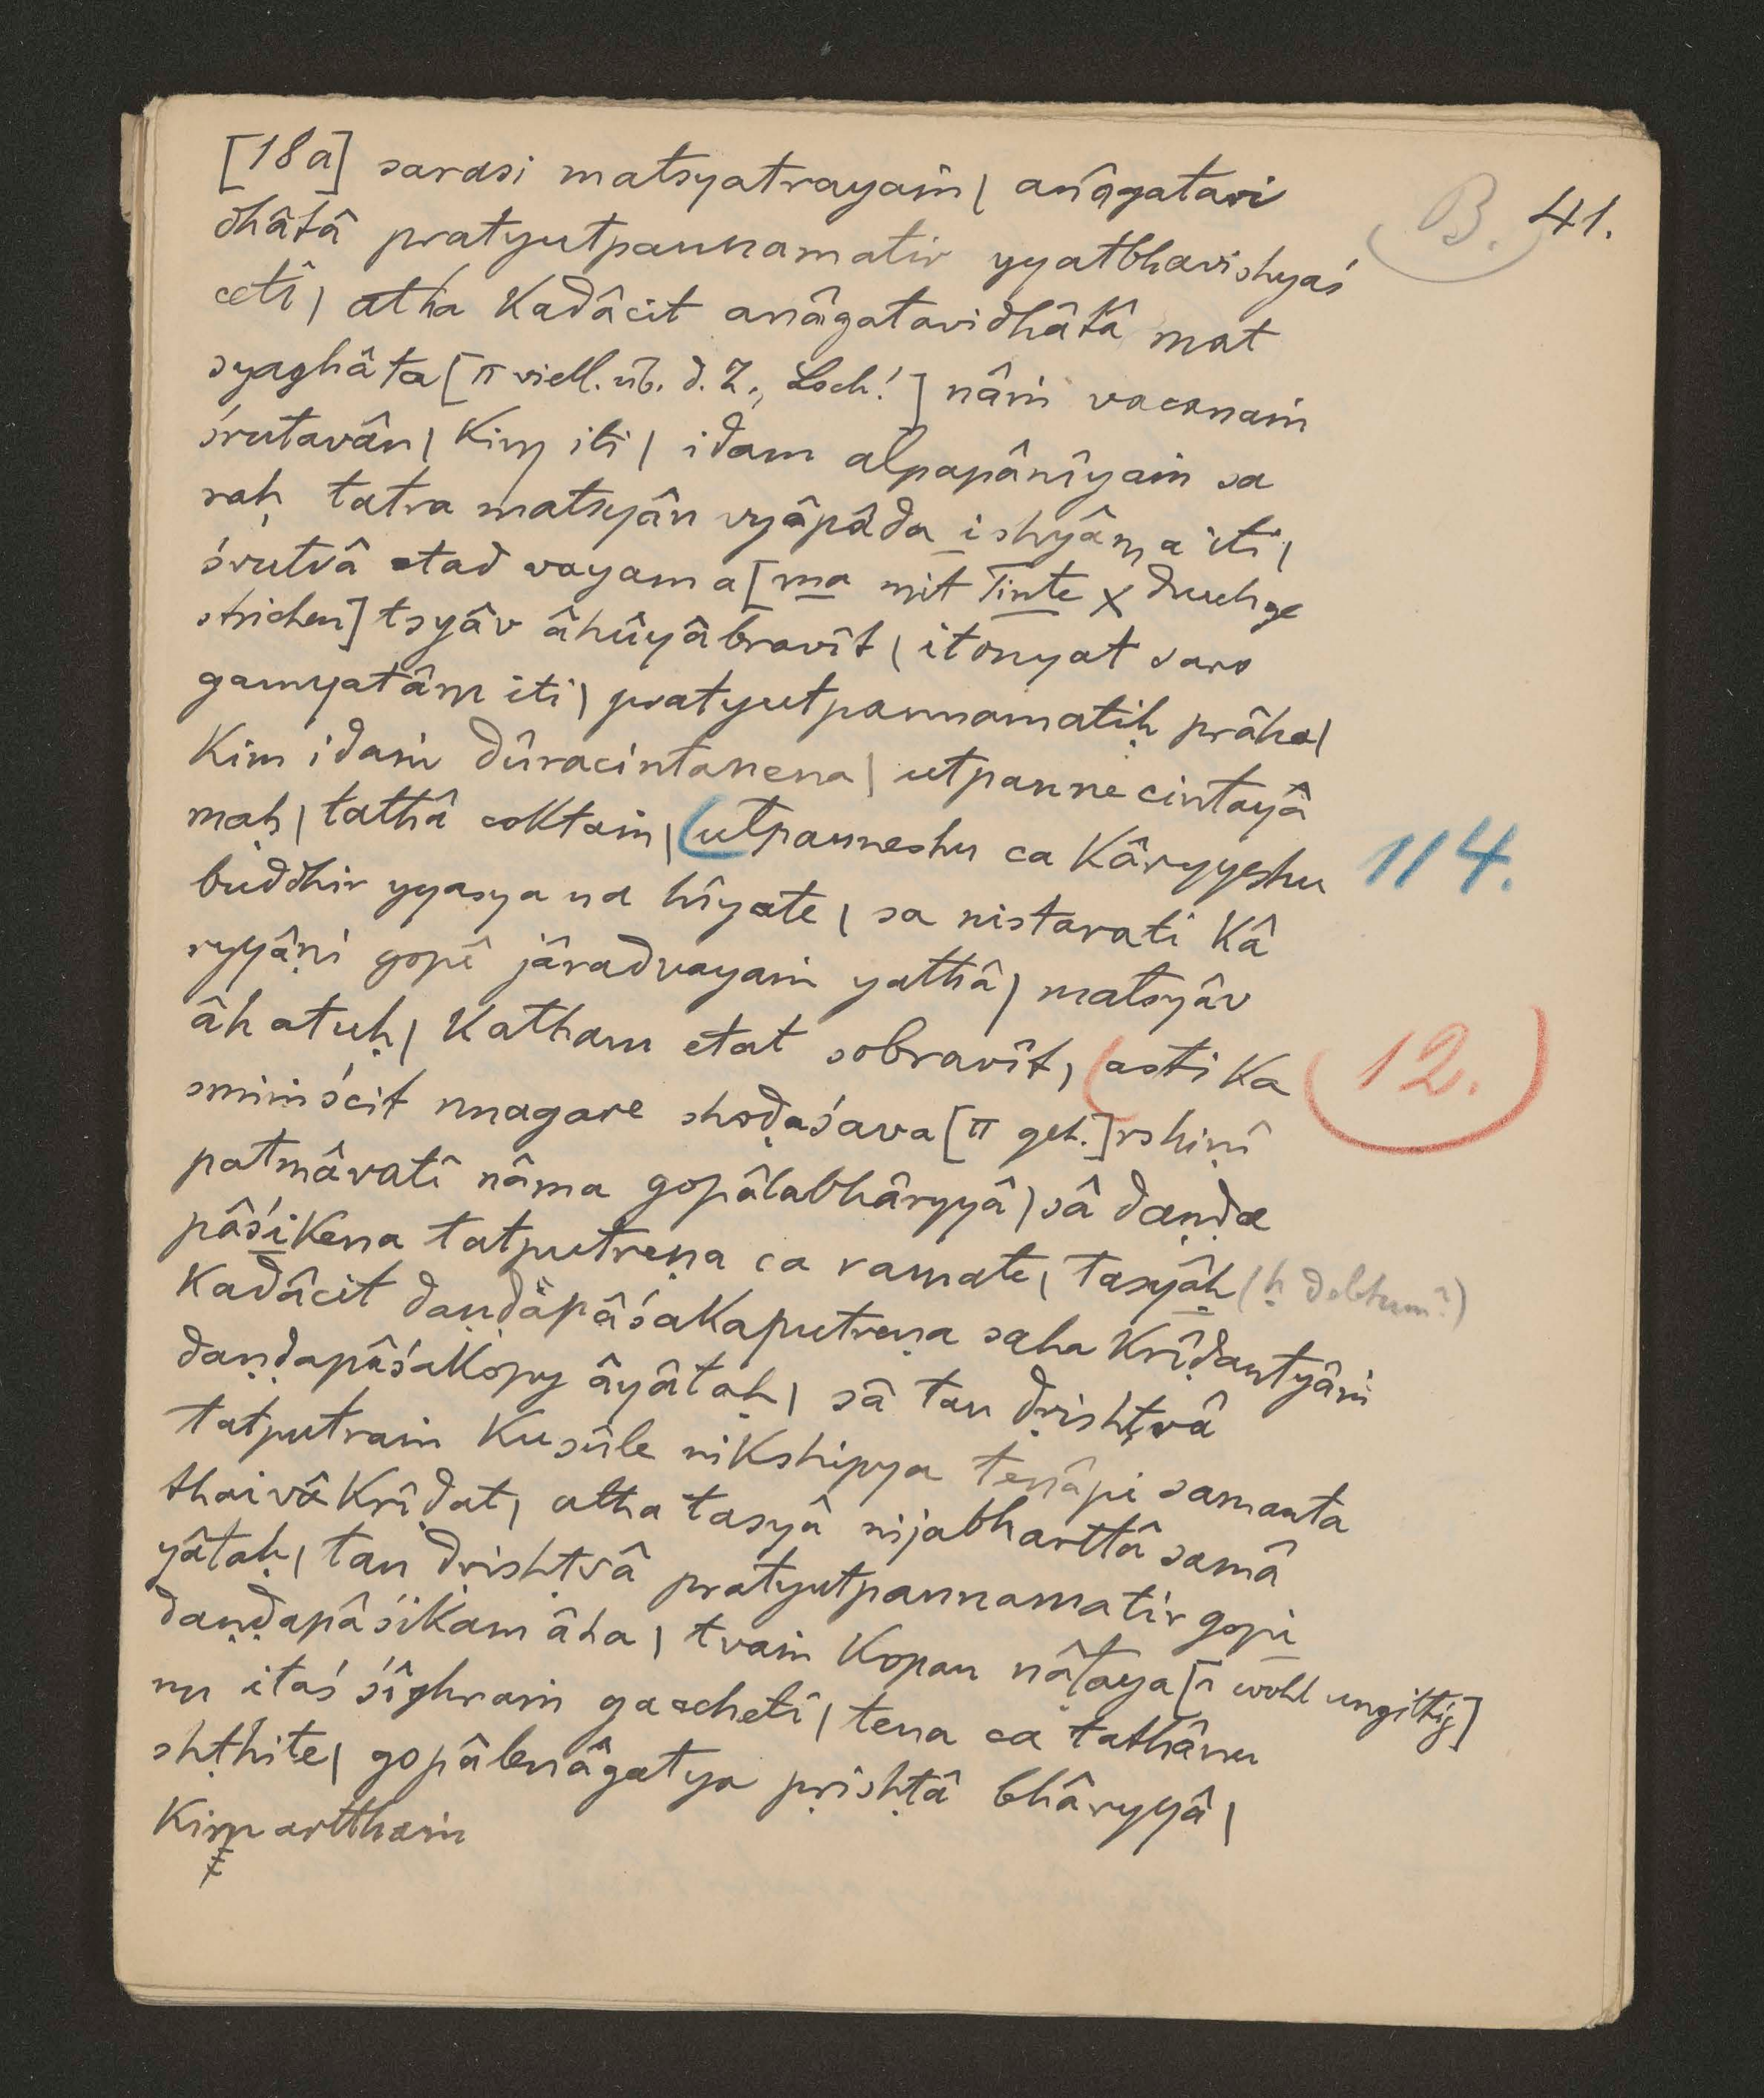 B. 41.
[18a] sarasi matsyatrayaṁ | anâgatavi
dhâtâ pratyutpannamatir yyatbhavishyaś
ceti | atha kadâcit anâgatavidhâtâ mat
syaghâta [π viell. üb. d. Z., Loch!] nâṁ vacanaṁ
śrutavân | kim iti | idam alpapânîyaṁ sa
raḥ tatra matsyân vyâpâda ishyâma iti |
śrutvâ etad vayam a [ma mit Tinte × durchge
strichen] tsyâv âhûyâbravît | itonyat saro
gamyatâm iti | pratyutpannamatiḥ prâha |
kim idaṁ dûracintanena | utpanne cintayâ
maḥ | tathâ coktaṁ | (utpanneshu ca kâryyeshu 114.
buddhir yyasya na hîyate | sa nistarati kâ
ryyâṇi gopî jâradvayaṁ yathâ | matsyâv
âhatuḥ | katham etat sobravît, (asti ka (12.)
smiṁścit nnagare shoḍaśava [π geh.] rshiṇî
patmâvatî nâma gopâlabhâryyâ | sâ daṇḍa
pâśikena tatputreṇa ca ramate | tasyâḥ (ḥ delendum?)
kadâcit daṇḍapâśakaputreṇa saha krîḍantyâṁ
daṇḍapâśakopy âyâtaḥ | sâ tan dṛishṭvâ
tatputraṁ kusûle nikshipya tenâpi samanta
thaivâkrîḍat | atha tasyâ nijabharttâ samâ
yâtaḥ | tan dṛishṭvâ pratyutpannamatir gopi
daṇḍapâśikam âha | tvaṁ kopan nâṭaya [n wohl ungiltig]
nn itaś śîghraṁ gaccheti | tena ca tathânu
shṭhite | gopâlenâgatya pṛishṭâ bhâryyâ |
kim artthaṁ